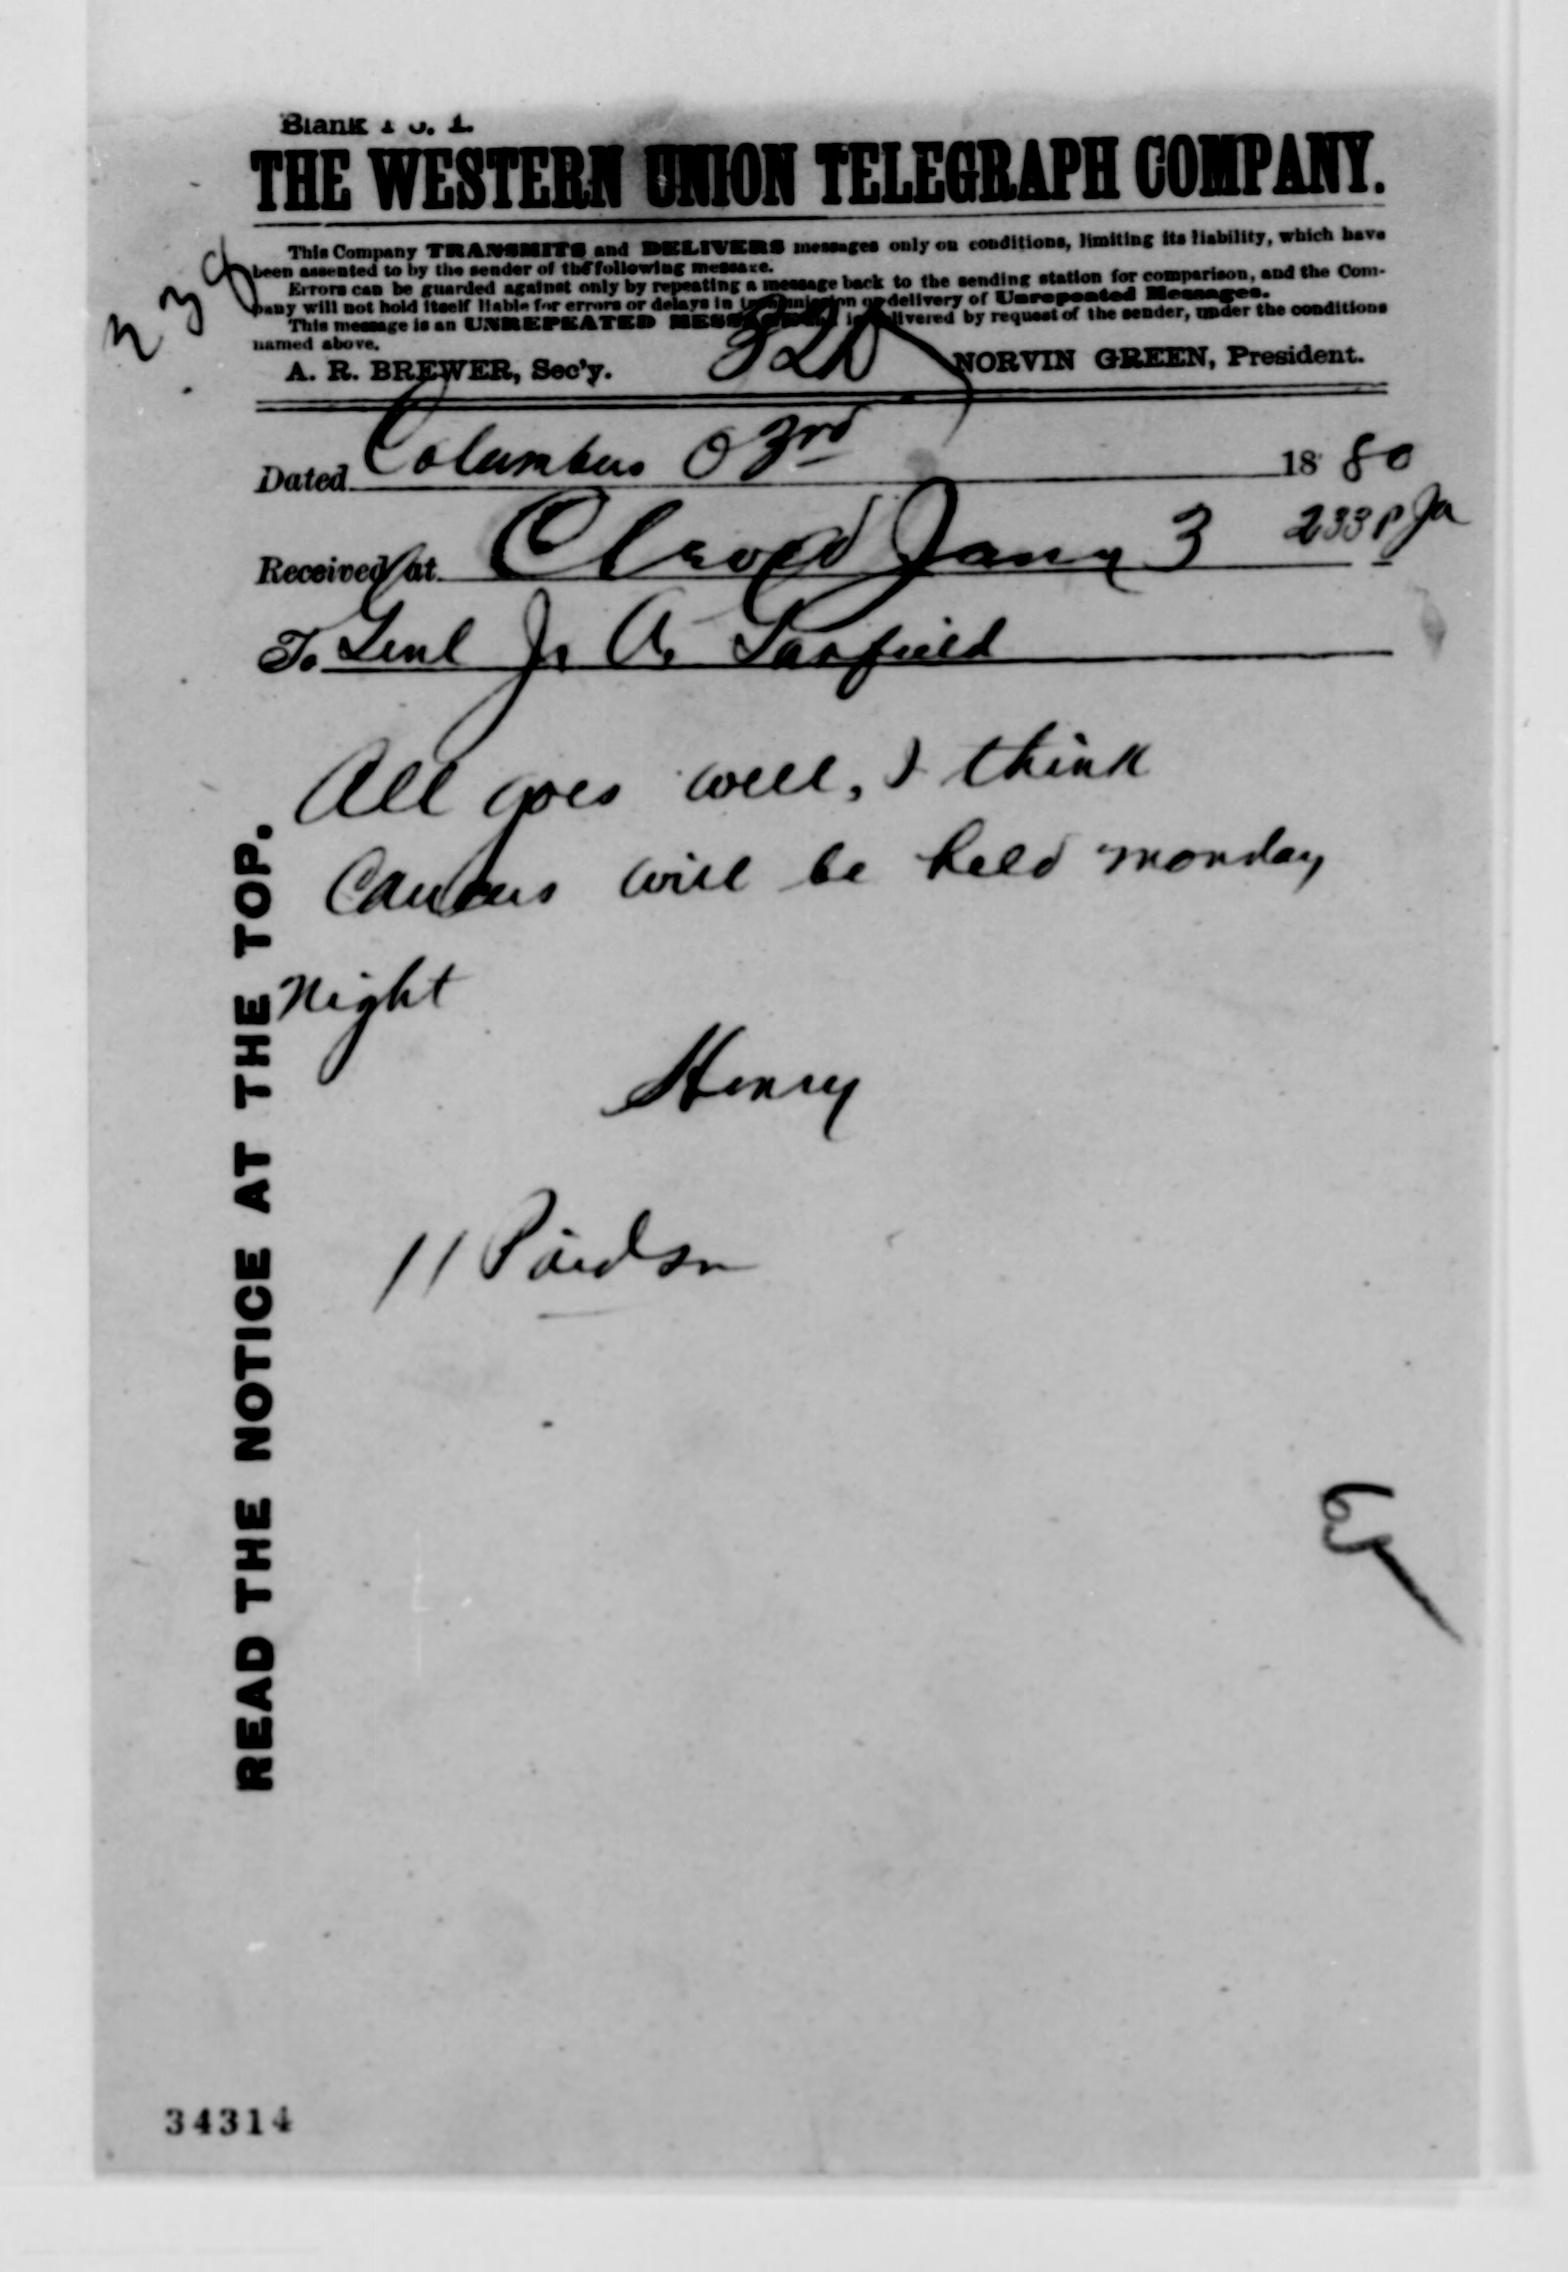 Blank No. 1.
THE WESTERN UNION TELEGRAPH COMPANY.
This Company TRANSMITS and DELIVERS messages only on conditions, limiting its liability, which have
been assented to by the sender of the following message.
Errors can be guarded against only by repeating a message back to the sending station for comparison, and the Com-
pany will not hold itself liable for errors or delays in transmission or delivery of Unrepeated Messages.
This message is an UNREPEATED MESSAGE and is delivered by request of the sender, under the conditions
named above.
A. R. BREWER, Sec'y. NORVIN GREEN, President.
239
Dated Columbus O 3rd 1880
Received at Cleved Jany 3 233 P
To Genl J. A. Garfield
All goes well, I think
Caucus will be held monday
night
Henry
11 Paid
READ THE NOTICE AT THE TOP.
34314